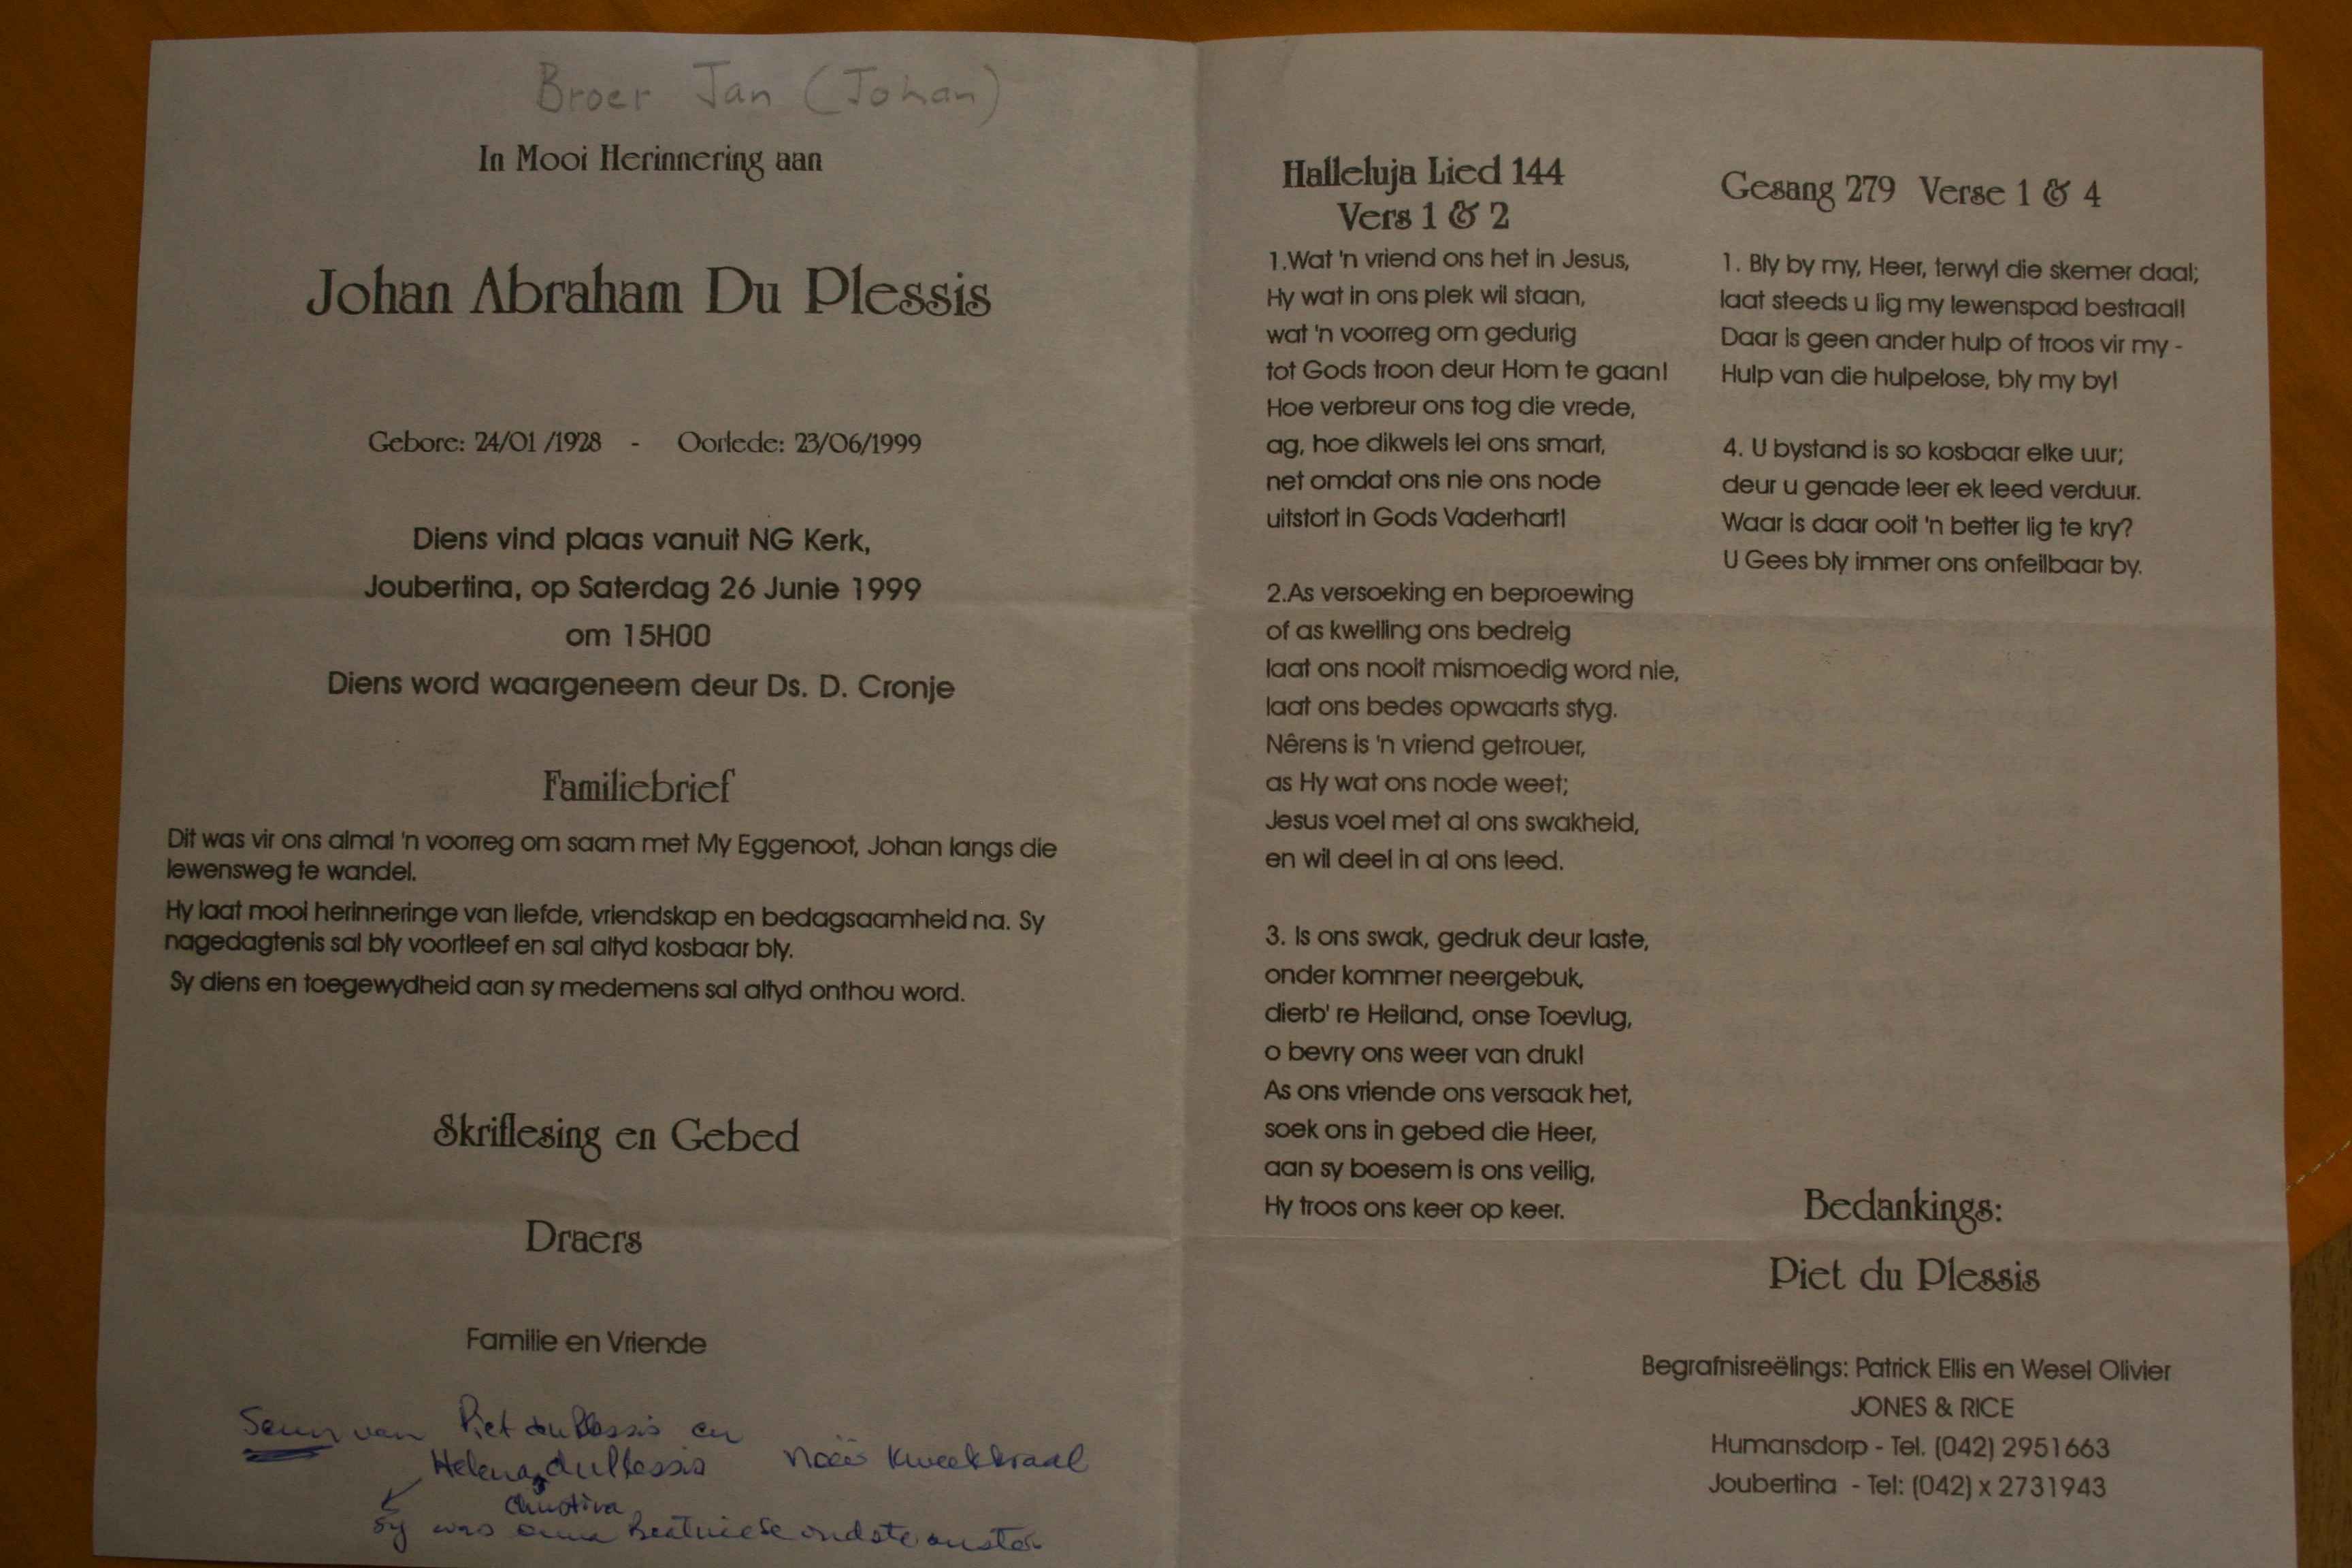 Broer Jan (Johan)
In Mooi Herinnering aan
Johan Abraham Du Plessis
Gebore: 24/01 /1928 - Oorlede: 23/06/1999
Diens vind plaas vanuit NG Kerk,
Joubertina, op Saterdag 26 Junie 1999
om 15H00
Diens word waargeneem deur Ds. D. Cronje
Familiebrief
Dit was vir ons almal 'n voorreg om saam met My Eggenoot, Johan langs die
lewensweg te wandel.
Hy laat mooi herinneringe van liefde, vriendskap en bedagsaamheid na. Sy
nagedagtenis sal bly voortleef en sal altyd kosbaar bly.
Sy diens en toegewydheid aan sy medemens sal altyd onthou word.
Skriflesing en Gebed
Draers
Familie en Vriende
Seun van Piet du Plessis en
Helena du Plessis noëe Kweekkraal
Christina
Sy was ouma Beatriese oudste suster
Halleluja Lied 144
Vers 1 & 2
1.Wat 'n vriend ons het in Jesus,
Hy wat in ons plek wil staan,
wat 'n voorreg om gedurig
tot Gods troon deur Hom te gaan!
Hoe verbreur ons tog die vrede,
ag, hoe dikwels lei ons smart,
net omdat ons nie ons node
uitstort in Gods Vaderhart!
2.As versoeking en beproewing
of as kwelling ons bedreig
laat ons nooit mismoedig word nie,
laat ons bedes opwaarts styg.
Nêrens is 'n vriend getrouer,
as Hy wat ons node weet;
Jesus voel met al ons swakheid,
en wil deel in al ons leed.
3. Is ons swak, gedruk deur laste,
onder kommer neergebuk,
dierb' re Heiland, onse Toevlug,
o bevry ons weer van druk!
As ons vriende ons versaak het,
soek ons in gebed die Heer,
aan sy boesem is ons veilig,
Hy troos ons keer op keer.
Gesang 279 Verse 1 & 4
1. Bly by my, Heer, terwyl die skemer daal;
laat steeds u lig my lewenspad bestraal!
Daar is geen ander hulp of troos vir my -
Hulp van die hulpelose, bly my by!
4. U bystand is so kosbaar elke uur;
deur u genade leer ek leed verduur.
Waar is daar ooit 'n better lig te kry?
U Gees bly immer ons onfeilbaar by.
Bedankings:
Piet du Plessis
Begrafnisreëlings: Patrick Ellis en Wesel Olivier
JONES & RICE
Humansdorp - Tel. (042) 2951663
Joubertina - Tel: (042) x 2731943